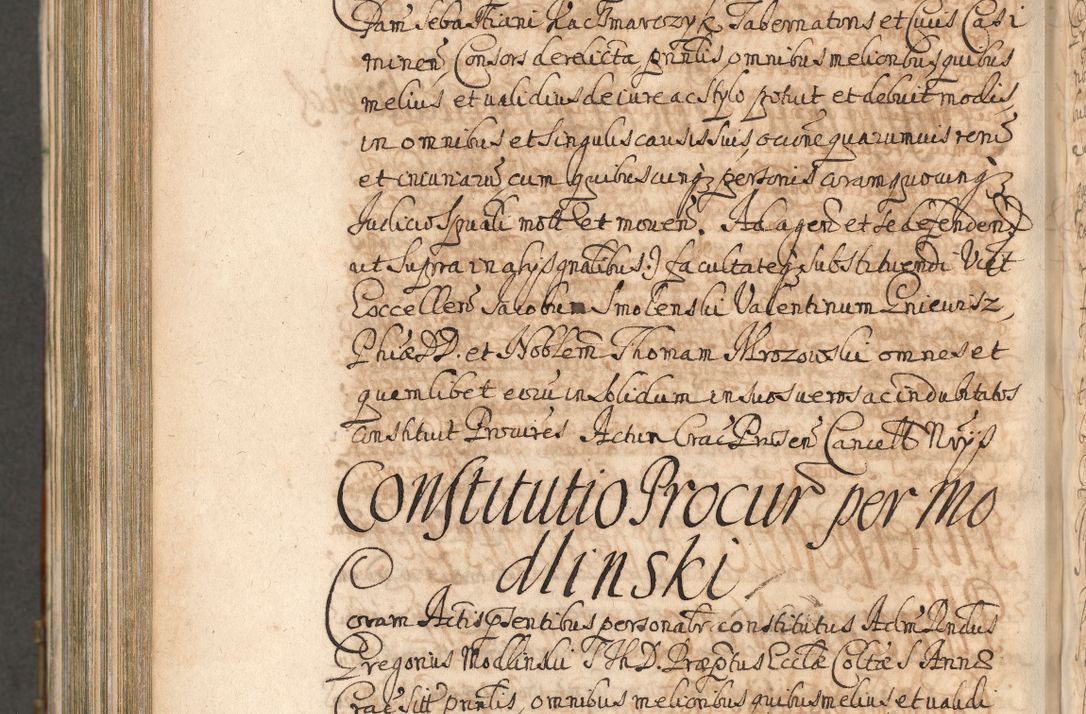 Dam Sebastiani Kaczmarczyk Tabernatoris et Civis Casi
miren̄ Consors derelicta pn̄tis omnibus melioribus quibus
melius et validius de iure ac stylo potuit et debuit modis
in omnibus et singulis causis suis, ac
et cum quibuscunq3 personis coram quocunq3
Judicio Spuali mott et moven̄. Ad agen̄ et se defenden̄
ut supra in Facultateq substituendi
Excellen̄ Jacobum Smolenski Valentinum Gniewisz,
Phiæ DD. et Noblem̄ Thomam Mrozowski omnes et
quemlibet eorū in solidum in suos veros ac indubitatos
constituit Procures Actum Crac̄ Præsen̄
Constitutio Procur̄ per Mo
dlinski
Coram Actis p̄sentibus personalr̄ constitutus Adm̄ Rndus
Gregorius Modlinski S Th. D. Præp̄tus Ecclæ Coltæ S Annæ
Crac̄ pn̄tis, omnibus melioribus quibus melius et validi